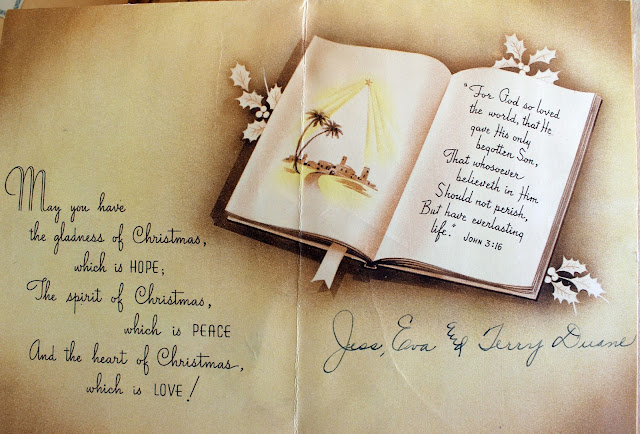 May you have
the gladness of Christmas,
which is HOPE;
The spirit of Christmas,
which is PEACE
And the heart of Christmas,
which is LOVE!
"For God so loved
the world, that He
gave His only
begotten Son,
That whosoever
believeth in Him
Should not perish,
But have everlasting
life."  JOHN 3:16
Jess, Eva and Terry Duane